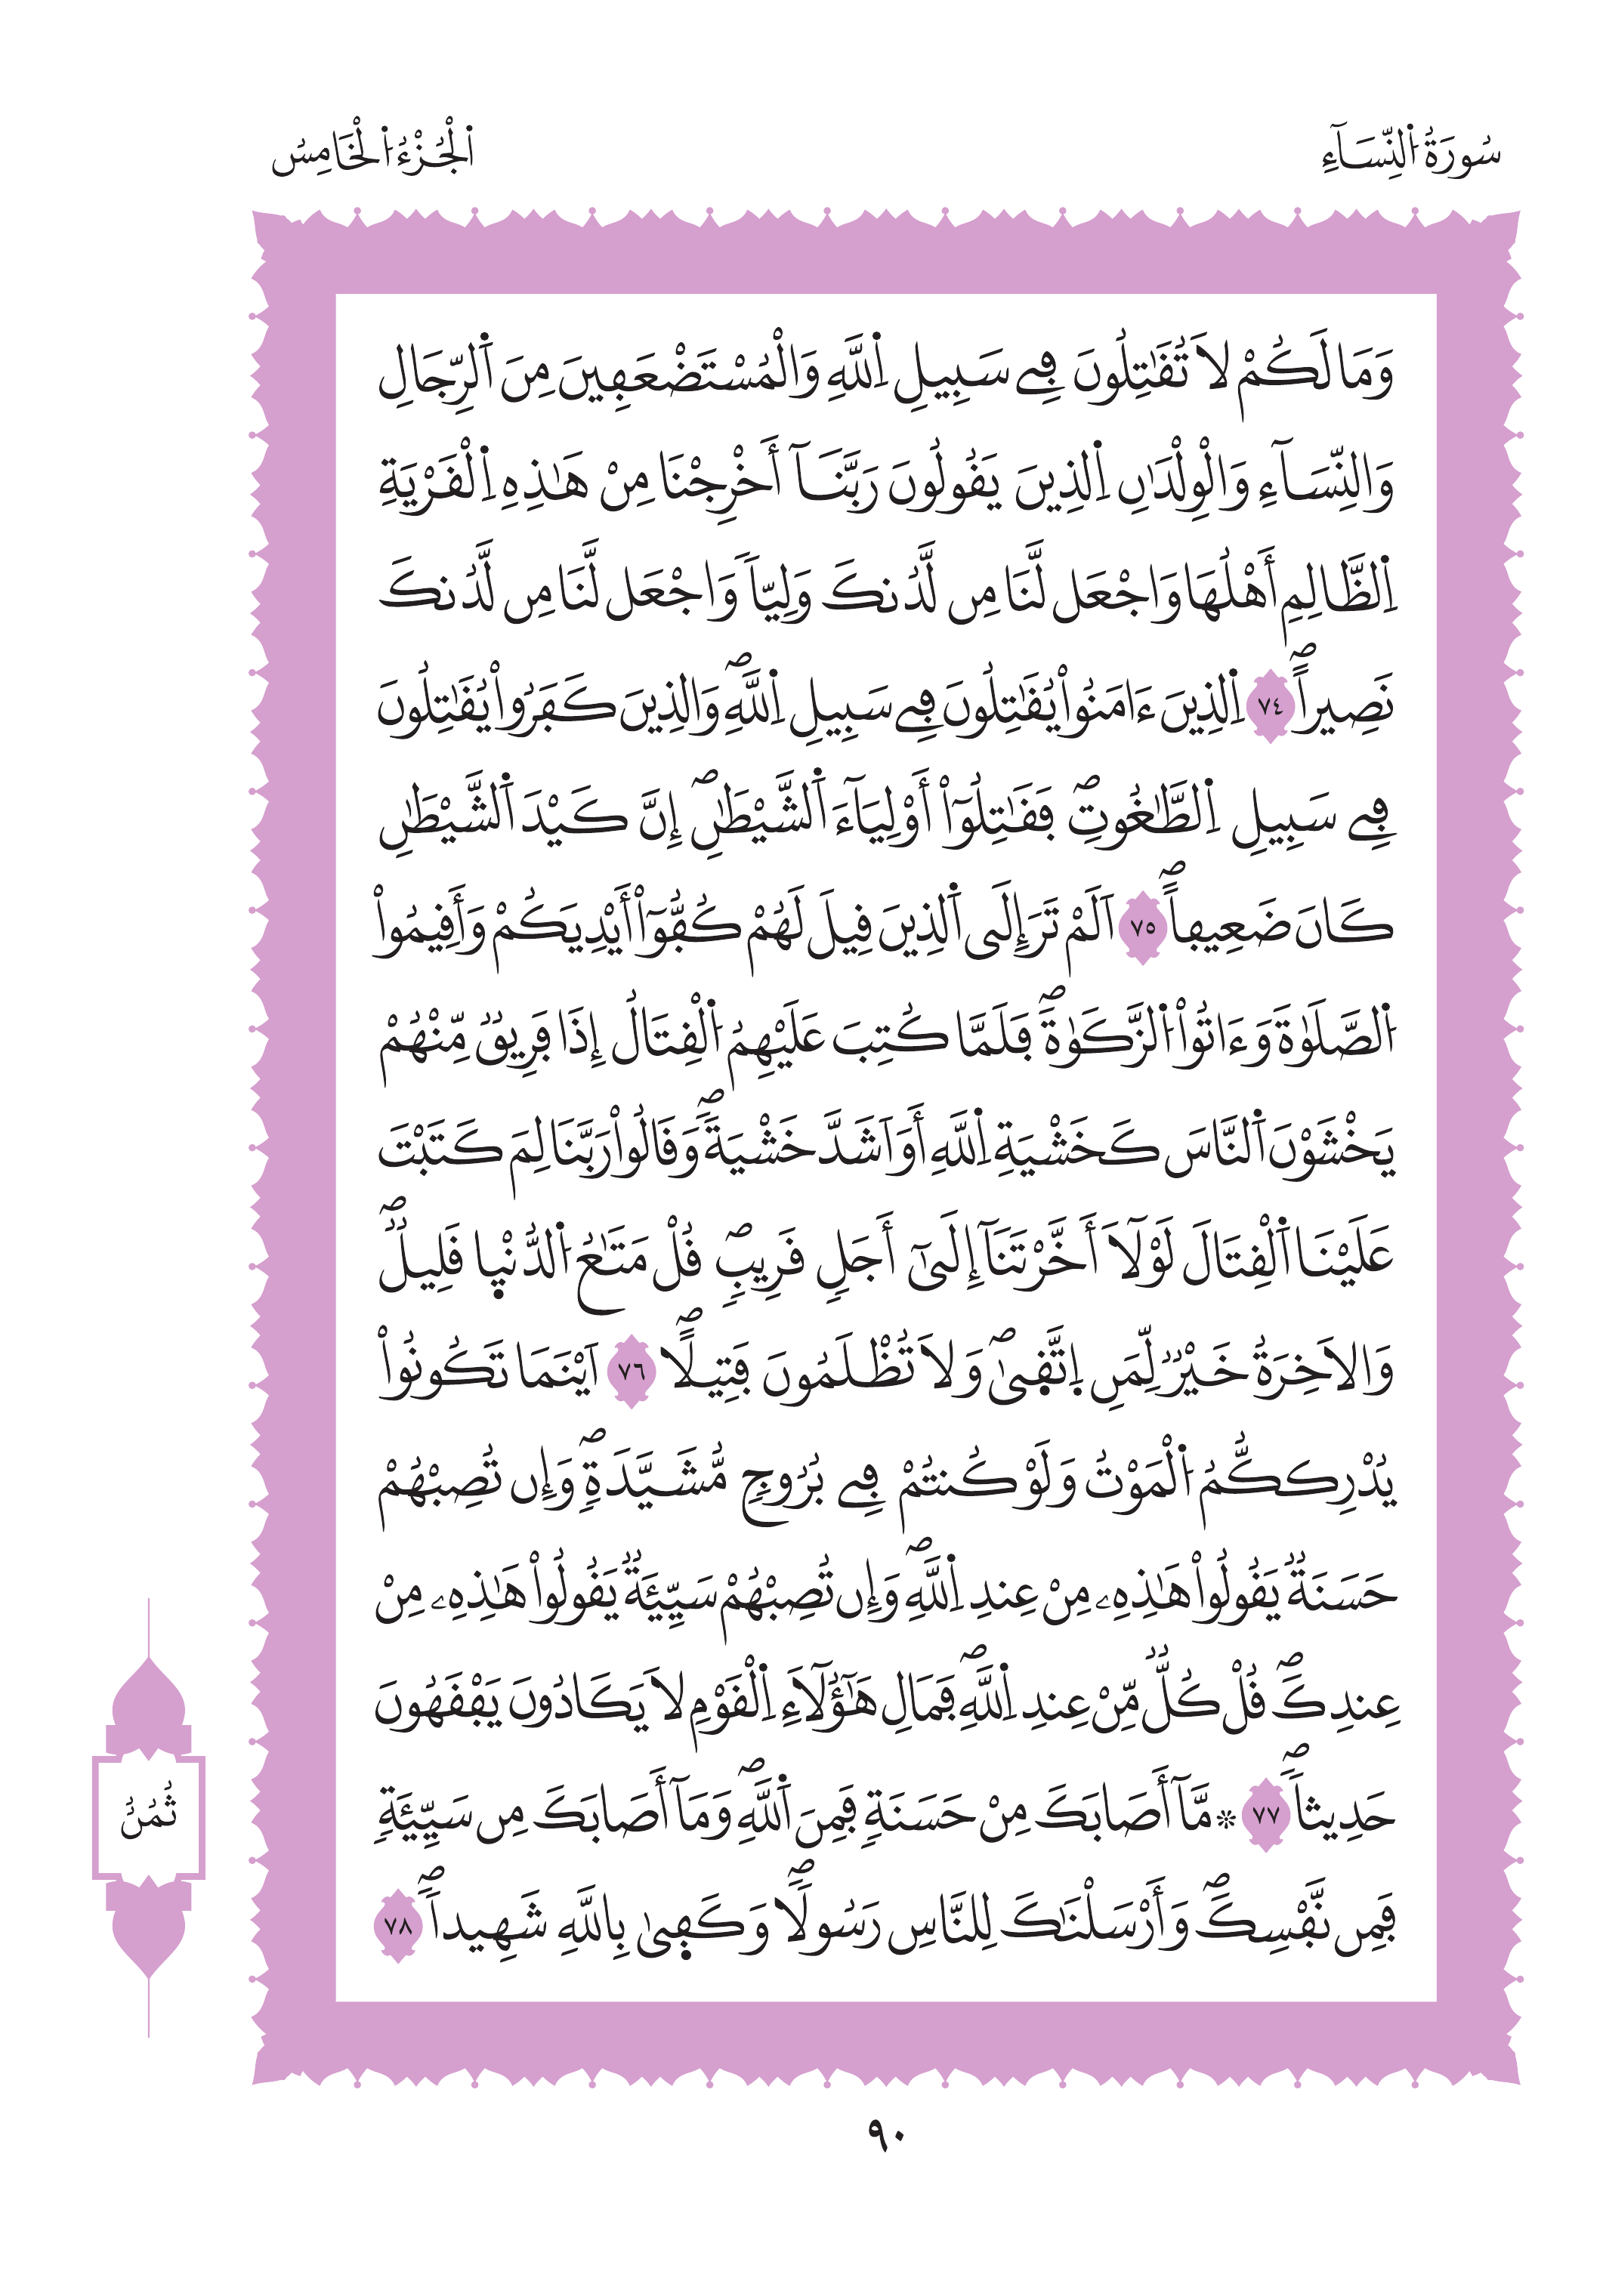 سُورَةُ اُلنِّسَآءِ
اُلْجُزْءُ اُلْخَامِسُ
وَمَا لَكُمْ لَا تُقَٰتِلُونَ فِے سَبِيلِ اِللَّهِ وَالْمُسْتَضْعَفِينَ مِنَ اَلرِّجَالِ
وَالنِّسَآءِ وَالْوِلْدَٰنِ اِلذِينَ يَقُولُونَ رَبَّنَآ أَخْرِجْنَا مِنْ هَٰذِهِ اِلْقَرْيَةِ
اِلظَّالِمِ أَهْلُهَا وَاجْعَل لَّنَا مِن لَّدُنكَ وَلِيّاً وَاجْعَل لَّنَا مِن لَّدُنكَ
نَصِيراًۖ ٧٤ اِلذِينَ ءَامَنُواْ يُقَٰتِلُونَ فِے سَبِيلِ اِللَّهِۖ وَالذِينَ كَفَرُواْ يُقَٰتِلُونَ
فِے سَبِيلِ اِلطَّٰغُوتِۖ فَقَٰتِلُوٓاْ أَوْلِيَآءَ اَلشَّيْطَٰنِۖ إِنَّ كَيْدَ اَلشَّيْطَٰنِ
كَانَ ضَعِيفاًۖ ٧٥ اَلَمْ تَرَ إِلَى اَلذِينَ قِيلَ لَهُمْ كُفُّوٓاْ أَيْدِيَكُمْ وَأَقِيمُواْ
اُلصَّلَوٰةَ وَءَاتُواْ اُلزَّكَوٰةَۖ فَلَمَّا كُتِبَ عَلَيْهِمُ اُلْقِتَالُ إِذَا فَرِيقٌ مِّنْهُمْ
يَخْشَوْنَ اَلنَّاسَ كَخَشْيَةِ اِللَّهِ أَوَ اَشَدَّ خَشْيَةًۖ وَقَالُواْ رَبَّنَا لِمَ كَتَبْتَ
عَلَيْنَا اَلْقِتَالَ لَوْلَآ أَخَّرْتَنَآ إِلَىٰٓ أَجَلٍ قَرِيبٍۖ قُلْ مَتَٰعُ اُلدُّنْيا قَلِيلٌۖ
وَالَاخِرَةُ خَيْرٌ لِّمَنِ اِتَّقىٰۖ وَلَا تُظْلَمُونَ فَتِيلاًۖ ٧٦ اَيْنَمَا تَكُونُواْ
يُدْرِككُّمُ اُلْمَوْتُ وَلَوْ كُنتُمْ فِے بُرُوجٍ مُّشَيَّدَةٍۖ وَإِن تُصِبْهُمْ
حَسَنَةٌ يَقُولُواْ هَٰذِهِۦ مِنْ عِندِ اِللَّهِۖ وَإِن تُصِبْهُمْ سَيِّئَةٌ يَقُولُواْ هَٰذِهِۦ مِنْ
عِندِكَۖ قُلْ كُلٌّ مِّنْ عِندِ اِللَّهِۖ فَمَالِ هَٰٓؤُلَآءِ اِلْقَوْمِ لَا يَكَادُونَ يَفْقَهُونَ
حَدِيثاًۖ ٧٧ ۞ مَّآ أَصَابَكَ مِنْ حَسَنَةٍ فَمِنَ اَللَّهِۖ وَمَآ أَصَابَكَ مِن سَيِّئَةٍ
فَمِن نَّفْسِكَۖ وَأَرْسَلْنَٰكَ لِلنَّاسِ رَسُولاًۖ وَكَفىٰ بِاللَّهِ شَهِيداًۖ ٧٨
ثُمُنُ
٩٠